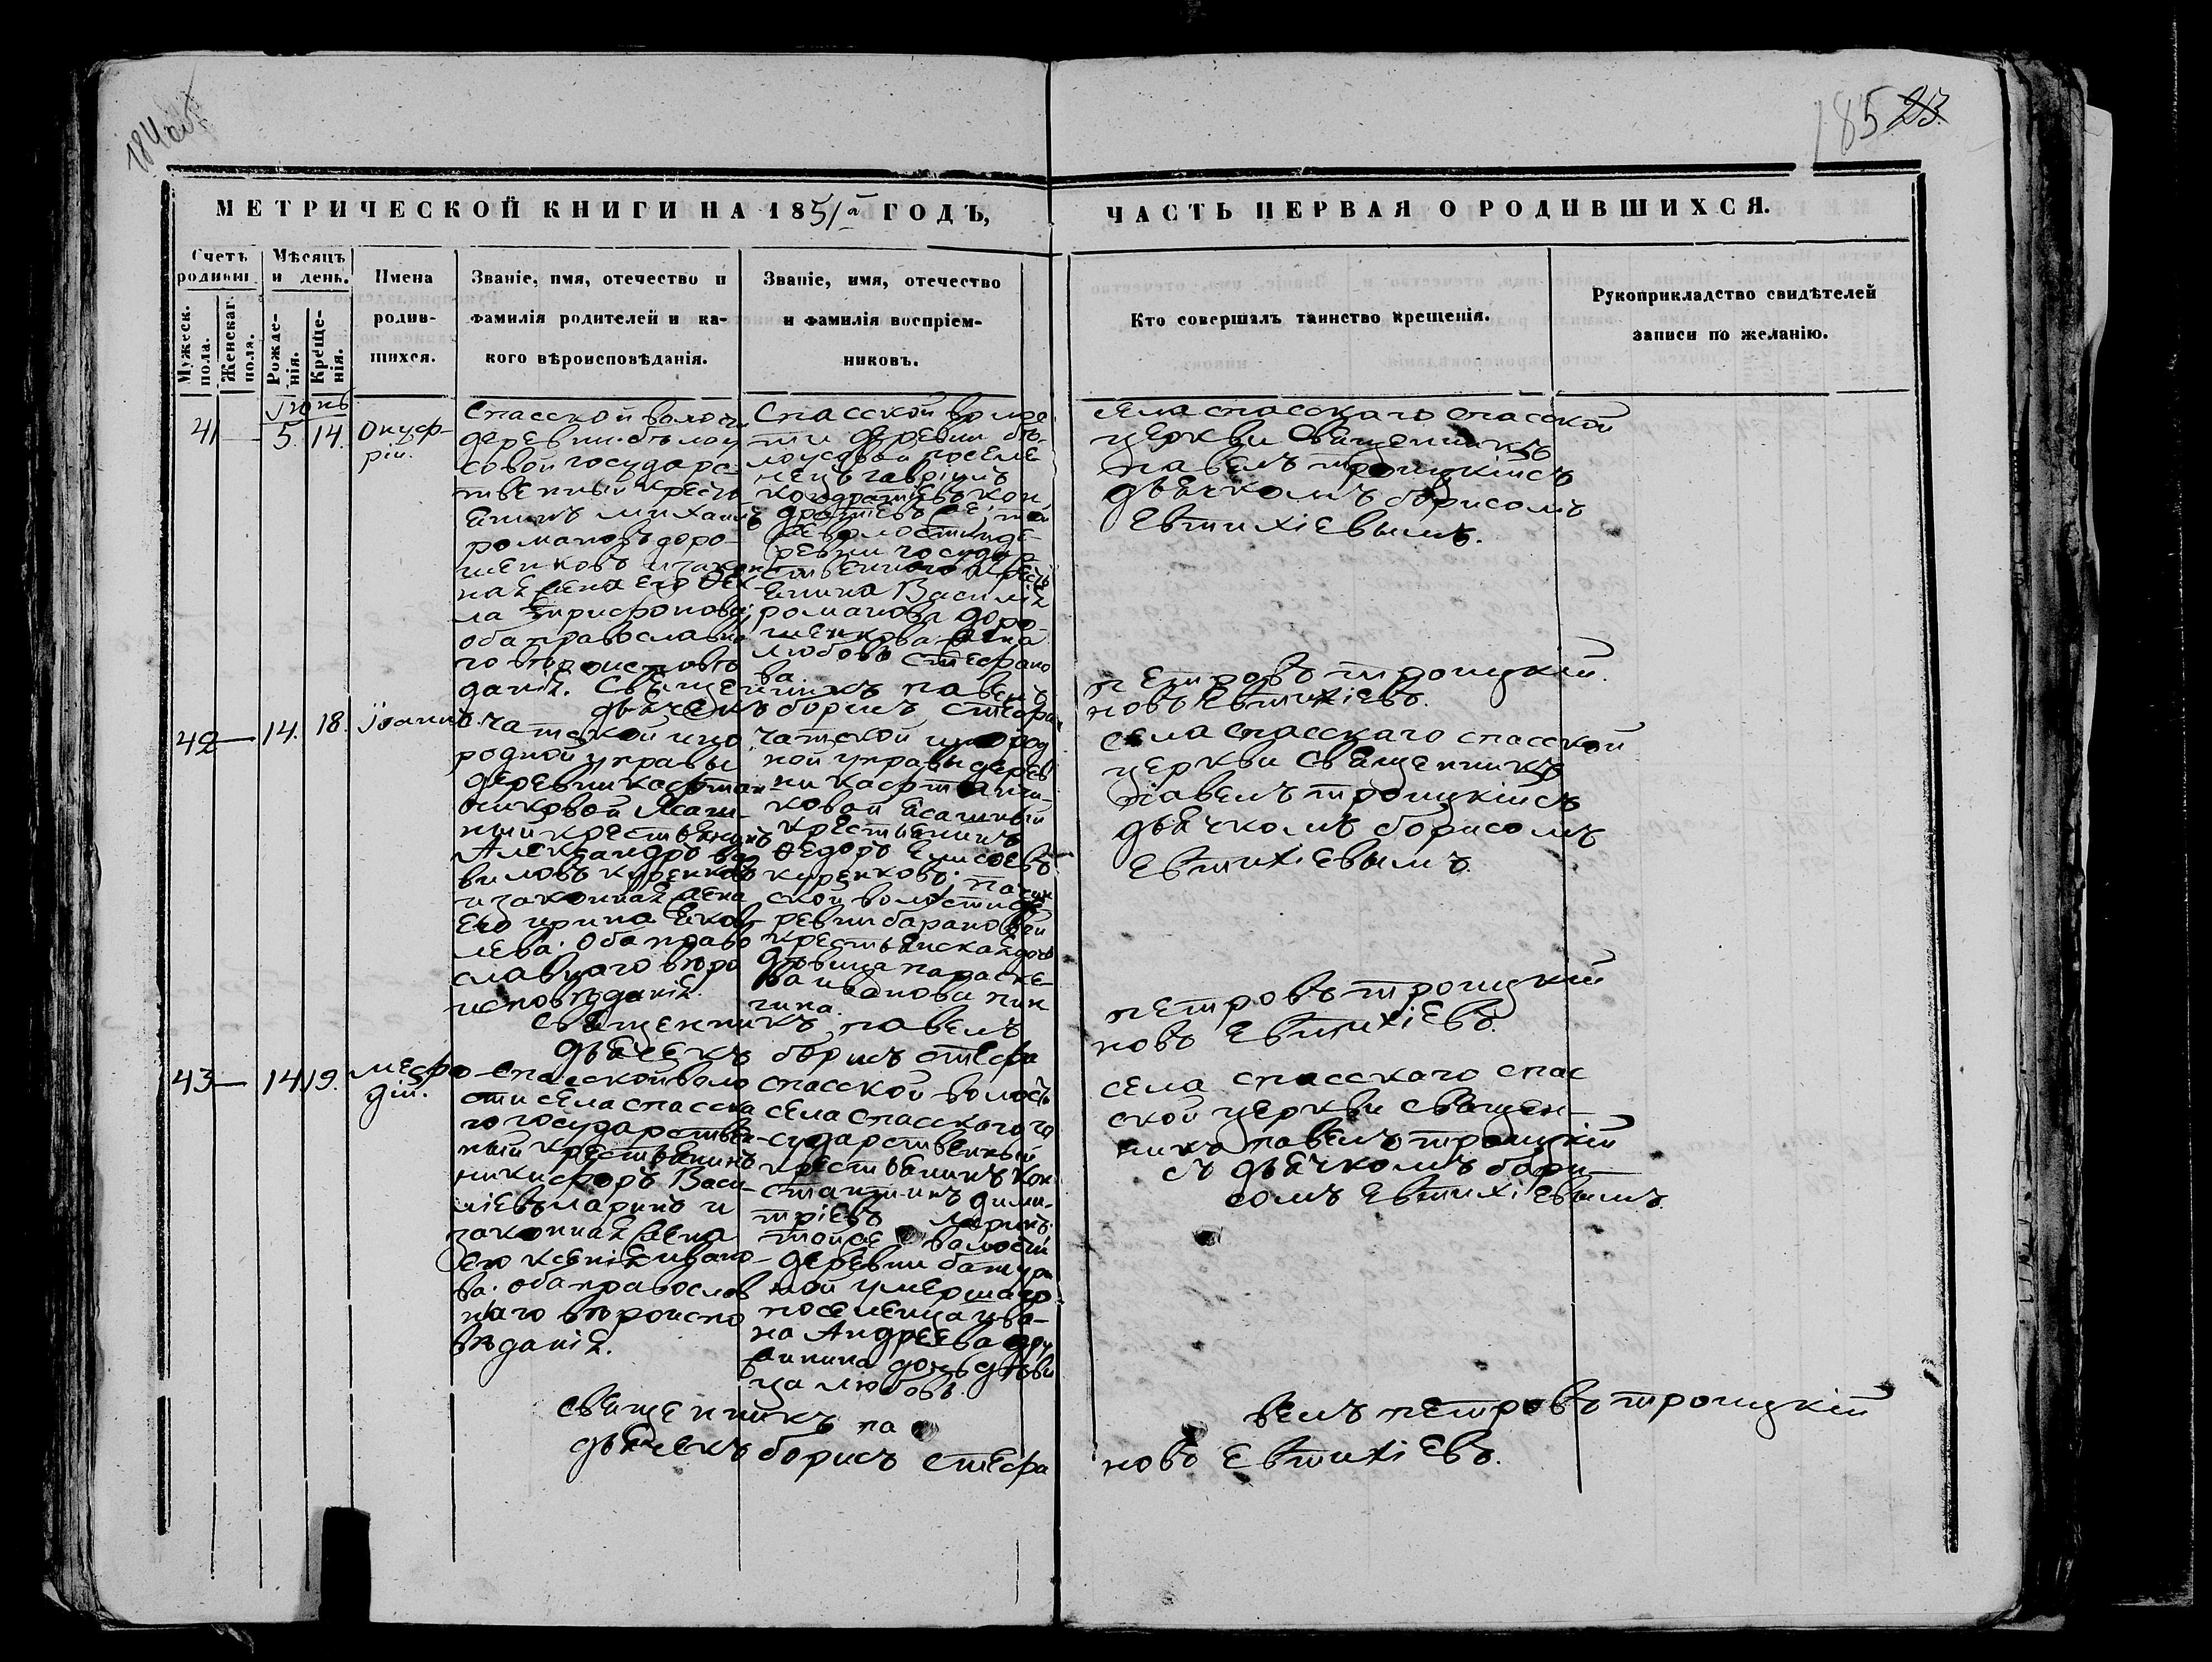 184 об
185 23
МЕТРИЧЕСКОЙ КНИГИ НА 1851й ГОДЪ,
ЧАСТЬ ПЕРВАЯ О РОДИВШИХСЯ.
Счетъ родивш.
Мужеск. пола.
Женскаг. пола.
Мѣсяцъ и день.
Рожде-нія.
Креще-нія.
Имена
родив-
шихся.
Званіе, имя, отечество и
фамилія родителей и ка-
кого вѣроисповѣданія.
Званіе, имя, отечество
и фамилія воспріем-
никовъ.
Кто совершалъ таинство крещенія.
Рукоприкладство свидѣтелей
записи по желанію.
Іюнь
41 — 5. 14. Онуф-
рій.
Спасской волости
деревни бѣлоу
совой государс-
твенный крестья
енинъ михаилъ
романовъ доро-
шенковъ и закон
ная жена его Ѳек
ла
оба православна
го вѣроисповѣ
данія.
Спасской воло
сти деревни бѣ-
лоусовой поселе
нецъ гавріилъ
кондратьевъ кон
дратьевъ
же волости де-
ревни государ
ственнаго крестья
енина Василія
романова доро-
шенкова жена
любовь стефано
ва.
села спасскаго спасской
церкви священникъ
павелъ троицкій съ
дьячкомъ борисомъ
Евтихіевымъ.
Священникъ павелъ петровъ троицкій.
дьячекъ борисъ стефановъ Евтихіевъ.
42 — 14. 18. Іоаннъ.
чатской ино
родной управы
деревни кафтан
чиковой ясаш-
ный крестьянинъ
Александръ ва
виловъ куренковъ
и законная жена
его ирина яков
лева. оба право
славнаго вѣро
исповѣданія.
чатской инород
ной управы дерев
ни кафтанчи-
ковой ясашный
крестьянинъ
Ѳедоръ елисеевъ
куренковъ.
ской волости де
ревни барановой
крестьянская дочь
дѣвица параске-
ва иванова пич
гина.
села спасскаго спасской
церкви священникъ
павелъ троицкій съ
дьячкомъ борисомъ
Евтихіевымъ.
священникъ павелъ петровъ троицкій
дьячекъ борисъ стефановъ Евтихіевъ.
43 — 14 19. мефо
дій.
спасской воло
сти села спасска
го государствен-
ный крестьянинъ
никифоръ Васи-
ліевъ ларинъ и
законная жена
его ксенія ивано-
ва. оба православ
наго вѣроиспо
вѣданія.
спасской волости
села спасскаго го
сударственный
крестьянинъ кон
стантинъ дими-
тріевъ ларинъ.
той же волости
деревни батури
ной умершаго
поселенца ива-
на Андреева дру
жинина дочь дѣви
ца любовь.
села спасскаго спас
ской церкви священ-
никъ павелъ троицкій
съ дьячкомъ бори-
сомъ Евтихіевымъ.
священникъ павелъ петровъ троицкій
дьячекъ борисъ стефановъ Евтихіевъ.